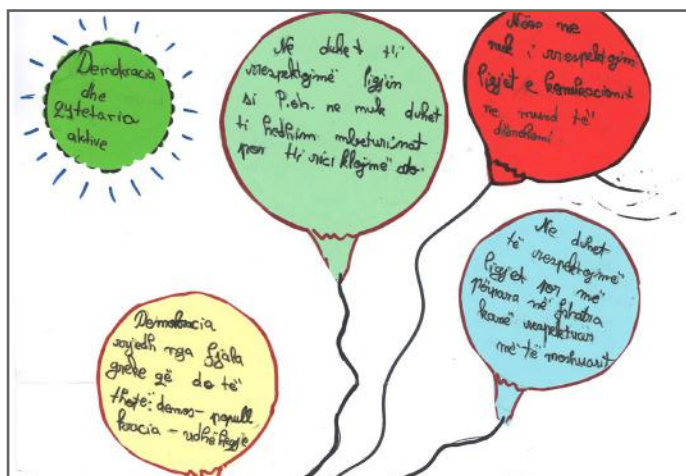 Demokracia
dhe
qytetaria
aktive
Ne duhet ti
rrespektojmë ligjin
si P.sh. ne nuk duhet
ti hedhim mbeturinat
por ti riciklojmë ato.
Nëse ne
nuk i rrespektojm
ligjet e komunikacionit
ne mund të
dëmtohemi.
Ne duhet
të respektojmë
ligjet por më
përpara në fshatra
kanë respektuar
më të moshuarit
Demokracia
rrjedh nga fjala
greke që do të
thotë: demos - popull
kracia - udhëheqje